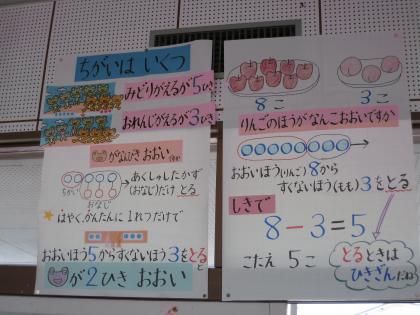 ちがいは いくつ
みどりがえるが5ひき
おれんじがえるが3びき
がなんびき おおいですか
あくしゅしたかず
(おなじ)だけ とる
ちがい
おなじ
はやく、かんたんに 1れつだけで
おおいほう5からすくないほう3をとると
が2ひき おおい
8こ
3こ
りんごのほうがなんこおおいですか
おおいほう(りんご)8から
すくないほう(もも)3をとる
しきで
8-3=5
こたえ 5こ
とるときは
ひきざんだね